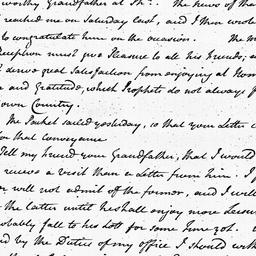 worthy Grandfather at Ph:. The news of tha
reached me on Saturday last, and I then wrote
to congratulate him on the occasion. The m
reception must give Pleasure to all his Friends; a
derive great Satisfaction from enjoying at Hom
and Gratitude, which Prophets do not always f
own Country.
The Packet sailed yesterday, so that your Letter c
for that Conveyance
Tell my friend your Grandfather, that I would
receive a visit than a Letter from him. I f
or will not admit of the former, and I will
the Latter until he shall enjoy more Leisure
probably fall to his Lott for some Time yet.
ed by the Duties of my office I should with